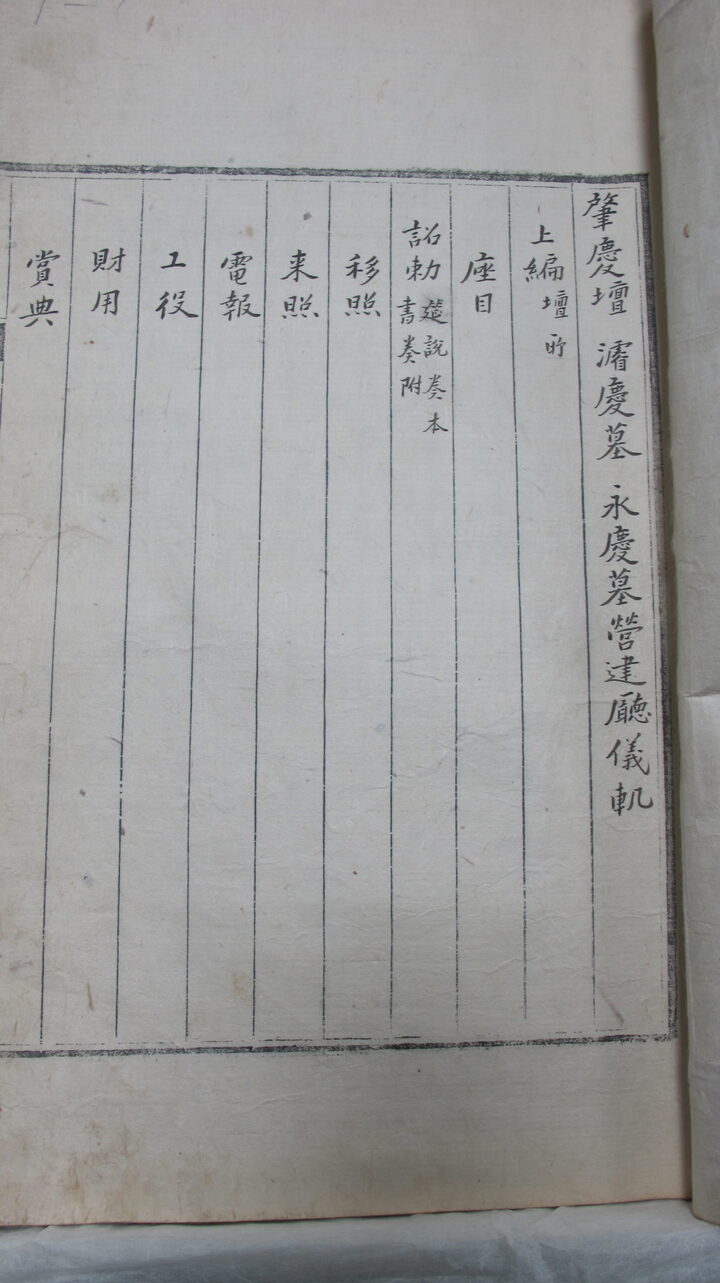 肇慶壇 濬慶墓 永慶墓營建廳儀軌
上編 壇所
座目
詔勅 筵說奏本
書奏附
移照
来照
電報
工役
財用
賞典